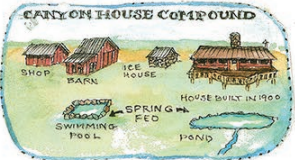 CANYON HOUSE COMPOUND
SHOP
BARN
ICE
HOUSE
HOUSE BUILT IN 1900
SWIMMING
POOL
SPRING
FED
POND